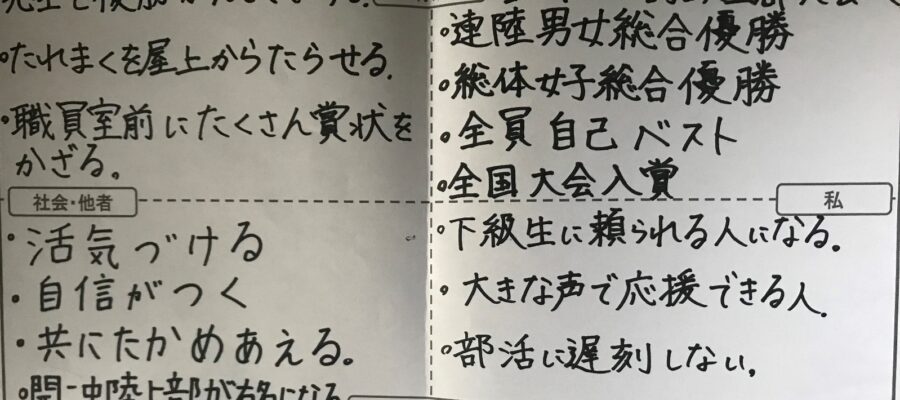 たれまくを屋上からたらせる.
職員室前にたくさん賞状を
かざる。
連陸男女総合優勝
総体女子総合優勝
全員自己ベスト
全国大会入賞
社会・他者
活気づける
自信がつく
共にたかめあえる。
私
下級生に頼られる人になる。
大きな声で応援できる人.
部活に遅刻しない。